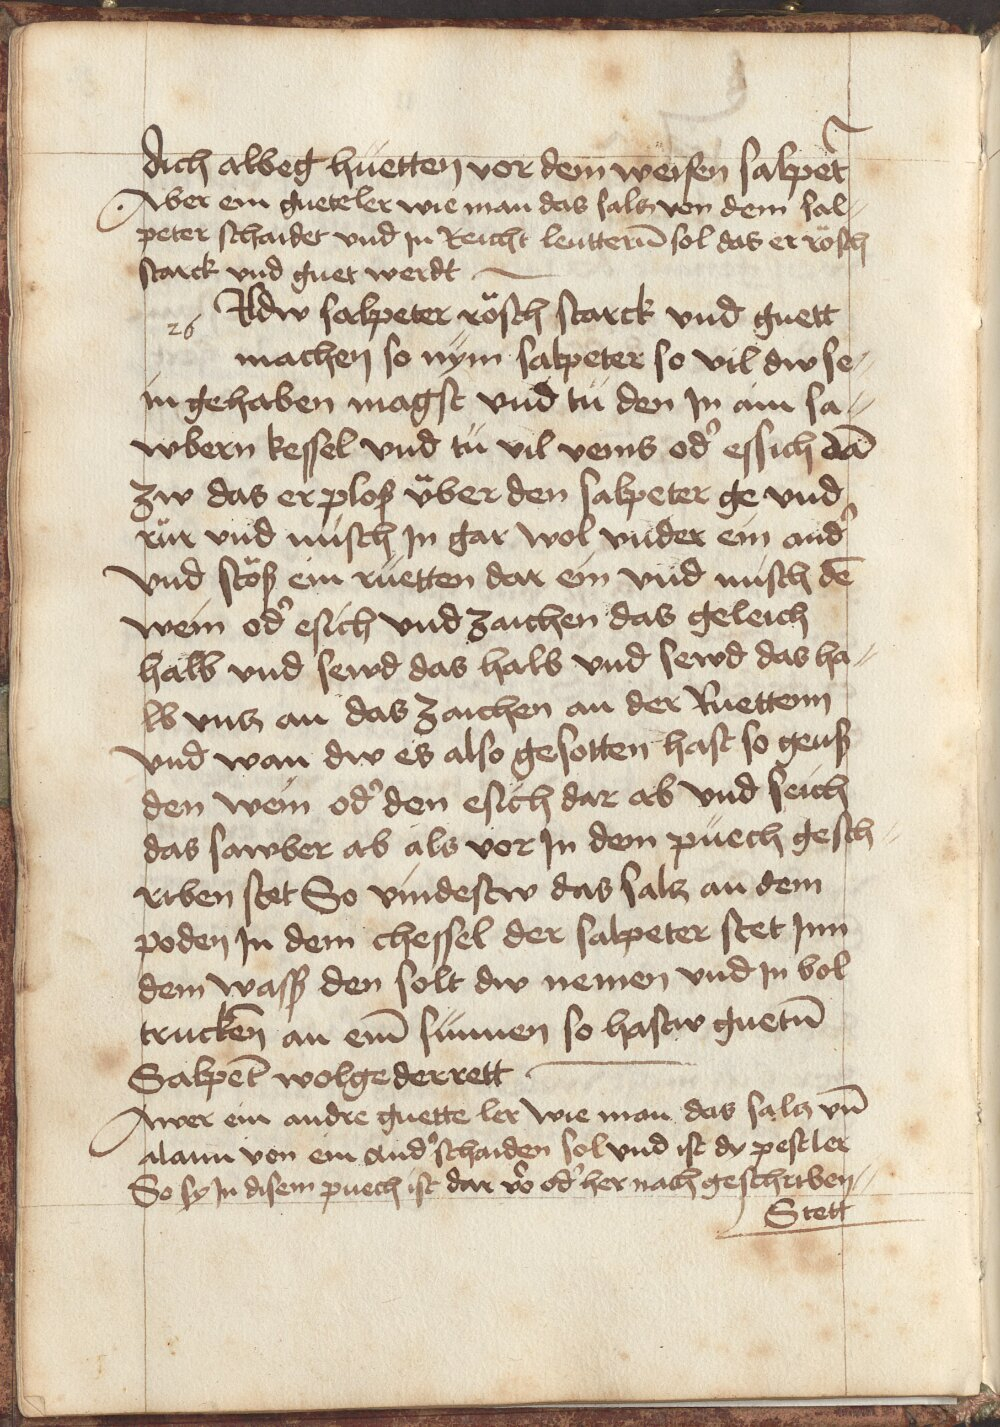 dich albeg hüetten vor dem weisen salpet̄
Aber ein gueteler wie man das salcz von dem sal=
peter schaidet vnd in Reicht leutterū sol das er rösch
starck vnd guet werdt
26 Wildw salpeter rösch starck vnd guett
machen so nÿm salpeter so vil dw se=
in gehaben magst vnd tü den Jn ain sa=
wbern kessel vnd tü vil weins od' essich dā
zw das er ploß über den salpeter ge vnd
rür vnd misch Jn gar wol vnder ein and'
vnd stöß ein rüetten dar ein vnd misch dē
wein od' esich vnd zaichen das geleich
halb vnd sewd das halb vnd sewd das ha=
lb vncz an das zaichen an der Ruettenn
vnd wan dw es also gesotten hast so geuß
den wein od' den esich dar ab vnd seich
das sawber ab als vor Jn dem püech gesch=
riben stet So vindestw das salcz an dem
poden Jn dem chessel der salpeter stet Jnn
dem wass' den solt dw nemen vnd in bol
truckēn an eim̄ sünnen so hastw guetn̄
Salpet̄ wolgederrett
Awer ein andre guette ler wie man das salcz vn̄
alaun von ein and' schaiden sol vnd ist dy pest ler
So sy Jn disem puech ist dar vō od' her nach geschriben=
Stett